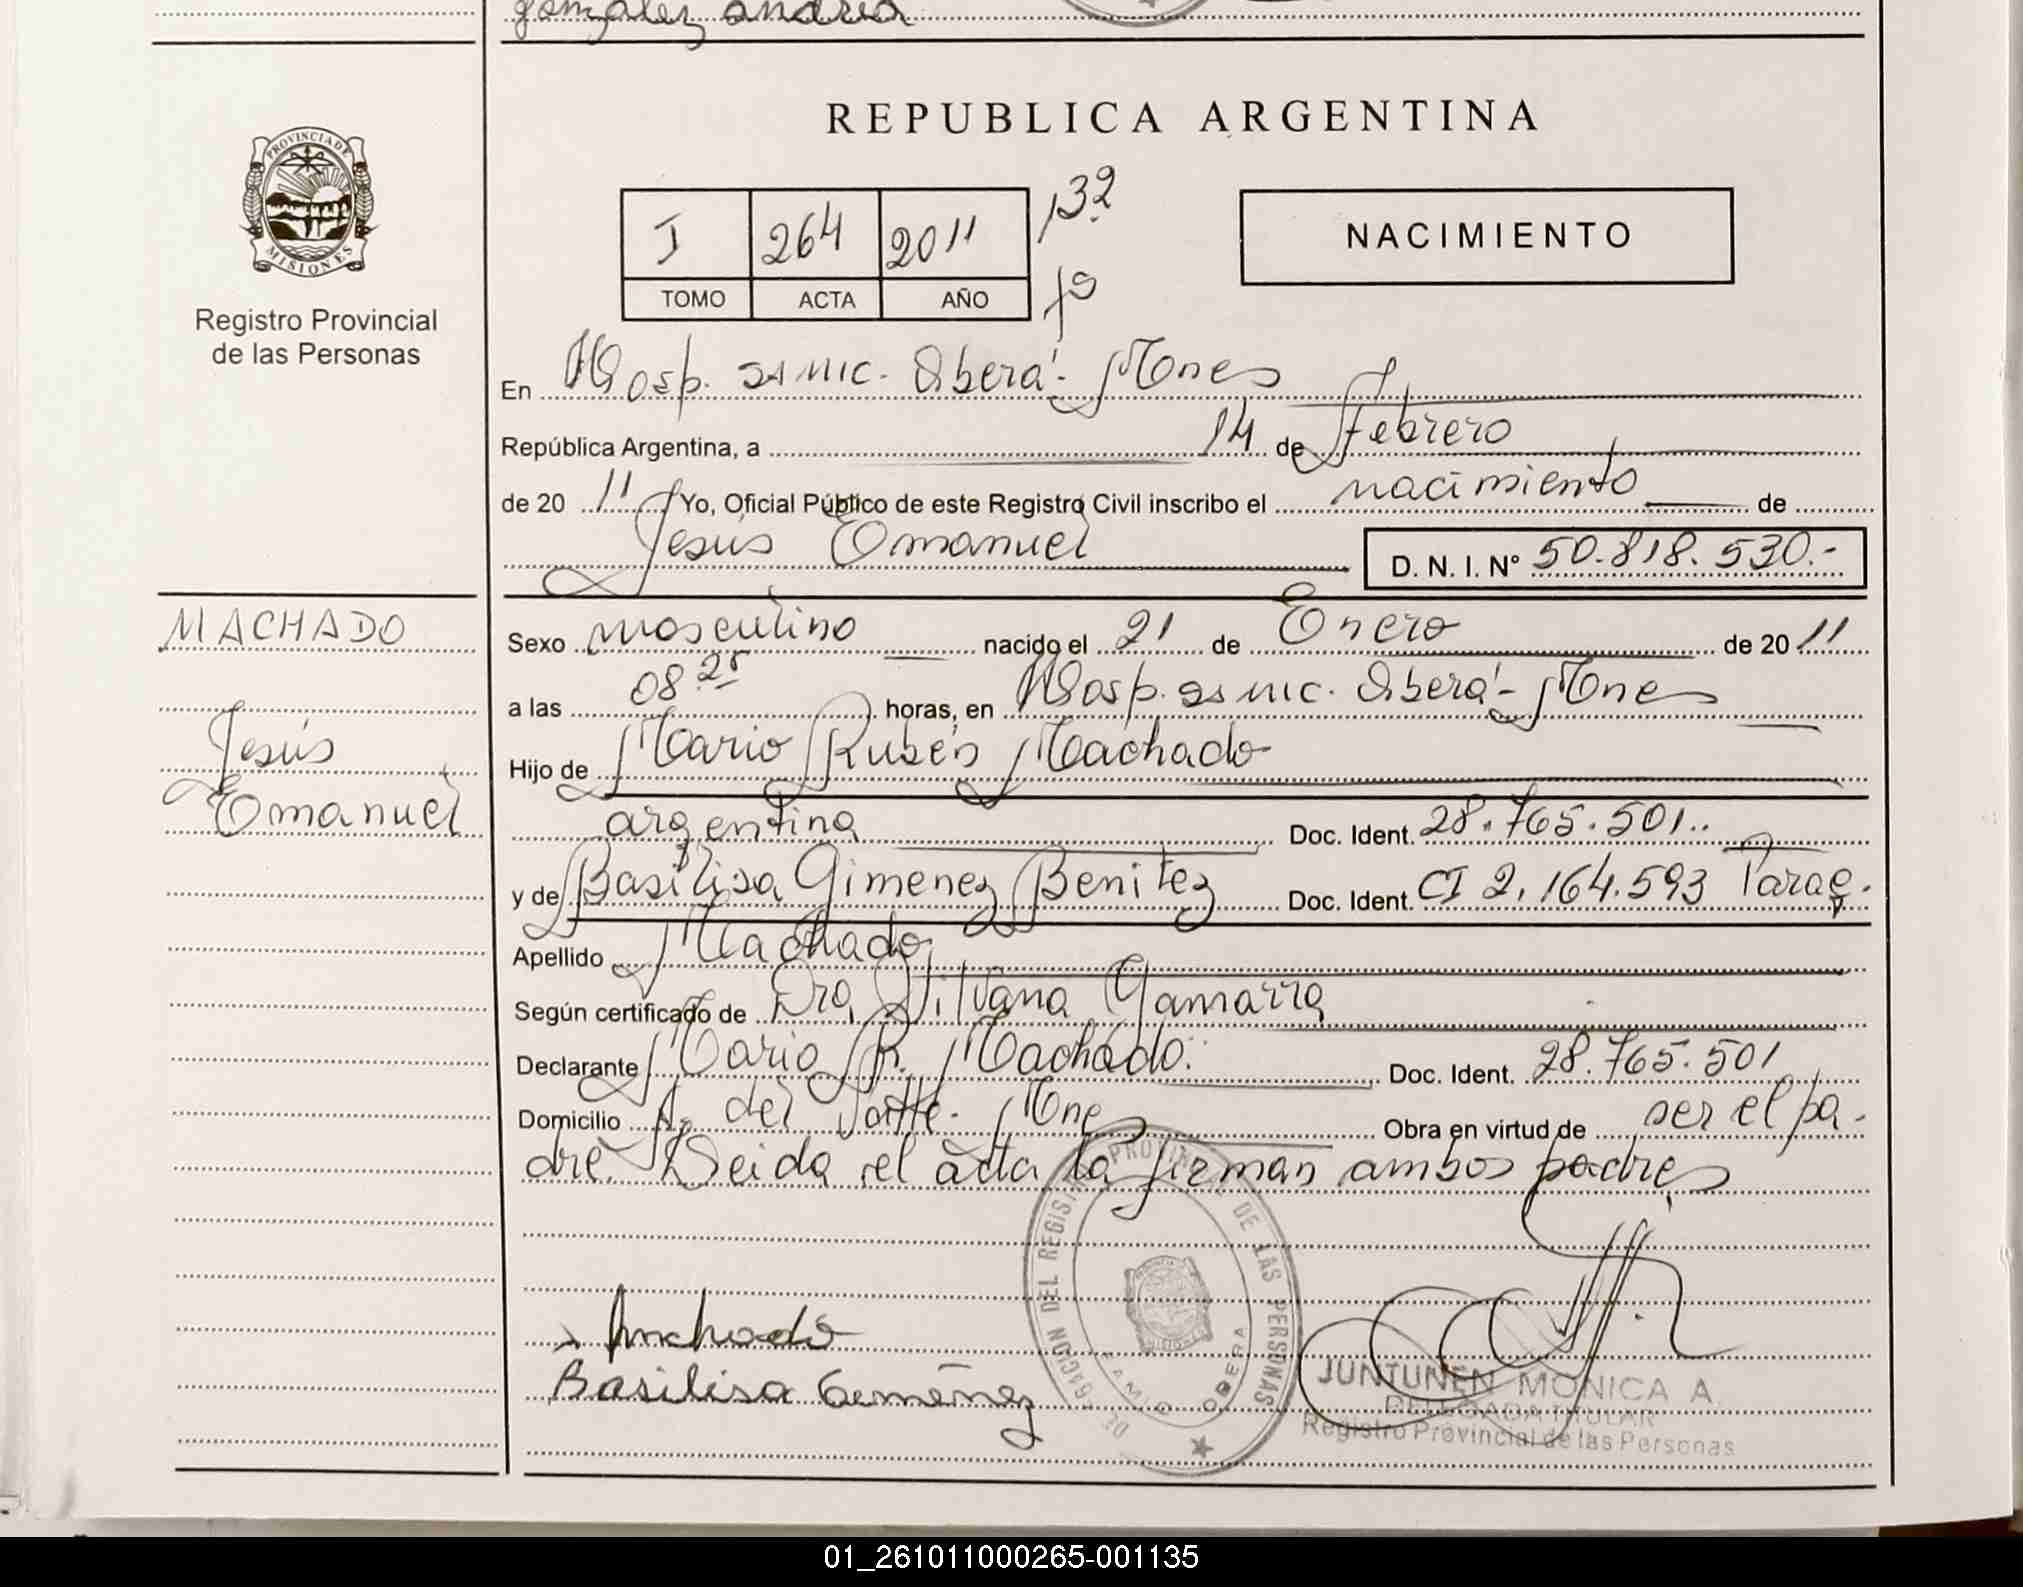 gonzalez andrea
REPUBLICA ARGENTINA
PROVINCIA DE
MISIONES
Registro Provincial
de las Personas
I 264 2011 132
TOMO ACTA AÑO fº
NACIMIENTO
En Hosp. Oberá - Mnes
República Argentina, a 14 de Febrero
de 20 11 Yo, Oficial Público de este Registro Civil inscribo el nacimiento de
Jesús Emanuel
D. N. I. Nº 50.818.530.-
MACHADO
Jesús
Emanuel
Sexo masculino nacido el 21 de Enero de 20 11
a las 08 25 horas, en Hosp. Oberá - Mnes
Hijo de Mario Rubén Machado
argentina Doc. Ident. 28.765.501..
y de Basilisa Gimenez Benitez Doc. Ident. CI 2.164.593 Parag.
Apellido Machado
Según certificado de Dra Silvana Gamarra
Declarante Mario R. Machado. Doc. Ident. 28.765.501
Domicilio A. del Mnes Obra en virtud de ser el pa-
dre. Leida el acta la firman ambos padres
Machado
Basilisa Gimenez
DELEGACION DEL REGISTRO PROVINCIAL DE LAS PERSONAS
OBERA
JUNTUNEN MONICA A.
DELEGADA TITULAR
Registro Provincial de las Personas
01_261011000265-001135